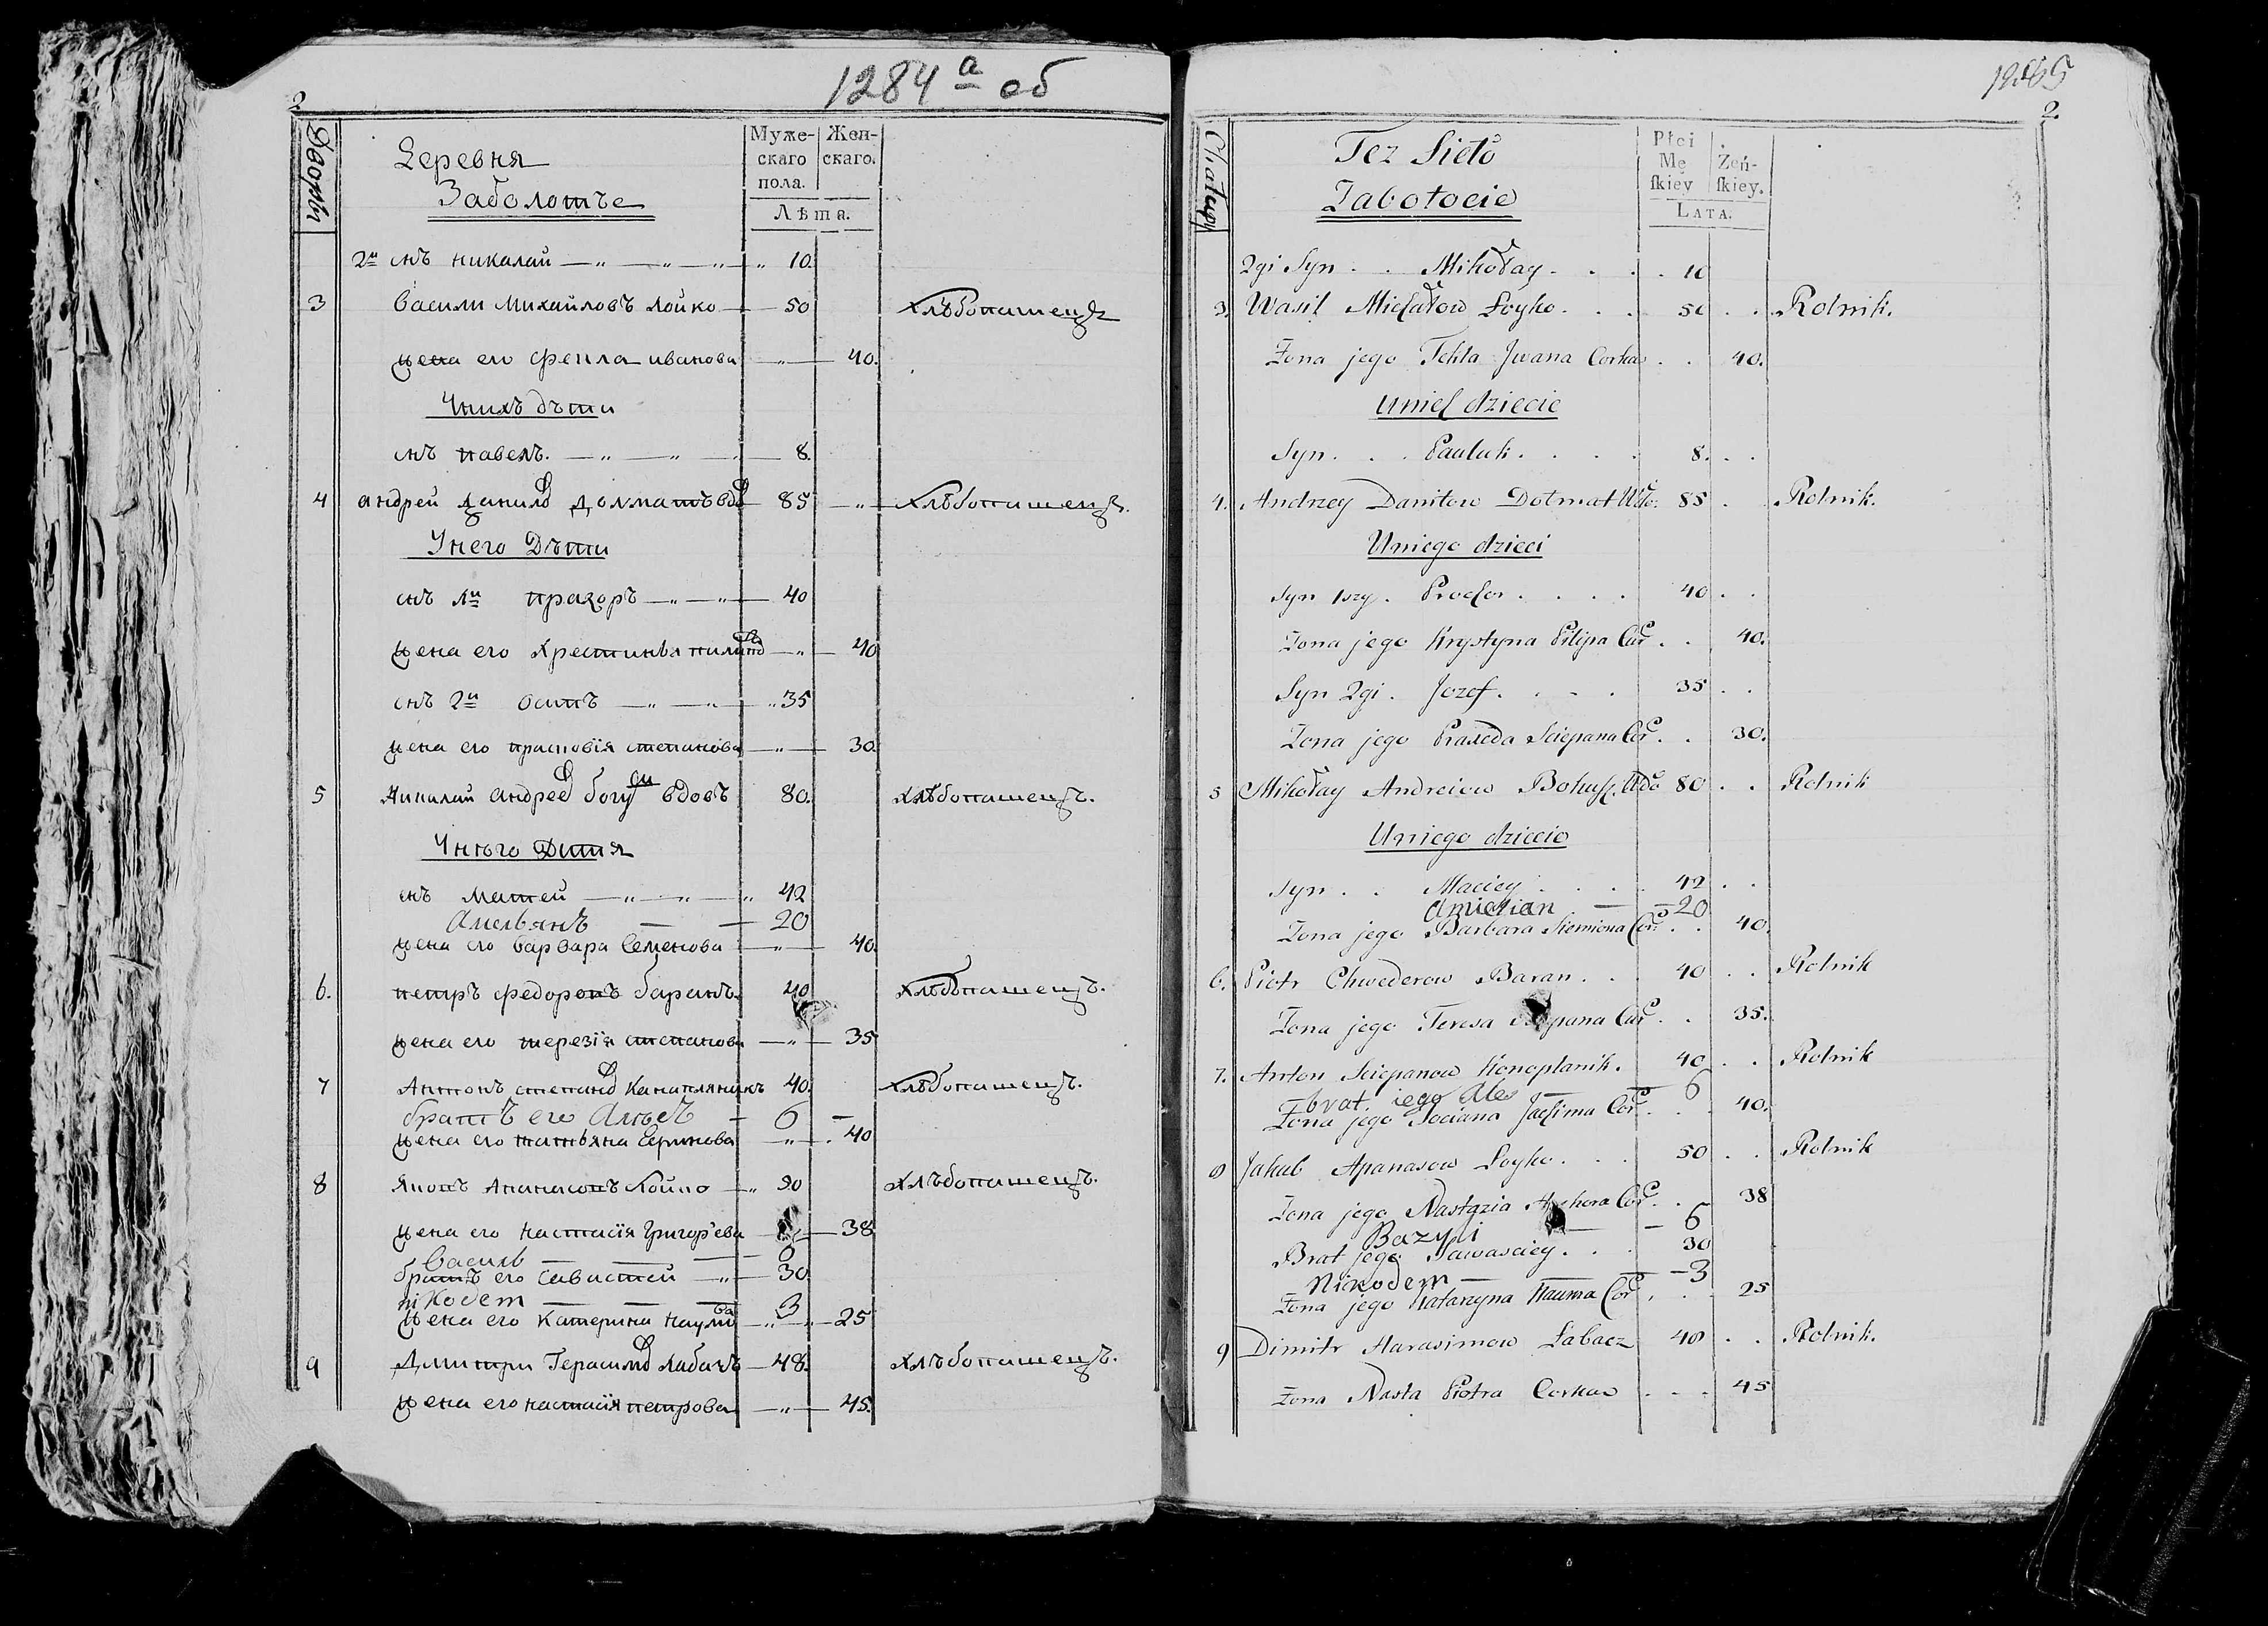 1284 а об
2
Дворы
Деревня
Заболотье
Муже-
скаго
пола.
Жен-
скаго.
Лѣта.
2й снъ николай — „ — „ — „ 10.
3 Васили Михайловъ лойко 50 хлѣбопашецъ
жена его фекла иванова — „ — 40.
Уних дѣти
снъ павелъ. — „ — „ — 8.
4 андрей данилов долматъ вдов 85 — „ — хлѣбопашецъ.
Унего Дѣти
снъ 1й прахоръ — „ — „ — 40
жена его Христинья пилипо — „ — 40
снъ 2й осипъ — „ — „ — „ 35
жена его прасковiя степанова — „ — 30.
5 Николай андреев богуш вдовъ 80. хлѣбопашецъ.
Унѣго Дитя
снъ матей — „ — „ — „ 42
Амельянъ — — 20
жена его варвара Семенова — „ — 40.
6. петръ федоровъ баранъ. 40 хлѣбопашецъ.
жена его терезiя степанова — „ — 35
7 Антонъ степанов Канапляникъ 40. хлѣбопашецъ.
братъ его Алесь — 6 —
жена его татьяна — „ — 40
8 Яковъ Апанасовъ Лойко — „ 50 хлѣбопашецъ.
жена его настасiя Григорьева — 38
Василь — — 6
братъ его савастей — „ — 30
nikodem — — — 3
жена его катерина наумова — „ — „ — 25
9 Дмитри Герасимов лабачъ — 48. хлѣбопашецъ.
жена его настасiя петрова — „ — 45.
2
Chatupy
Tez Sieło
Zabołocie
Płci
Mę
ſkiey
Żeń-
ſkiey.
LATA.
2gi Syn . . Mikołay . . . . 10
3. Wasil Michałow Łoyko . . . 50 . . Rolnik.
Żona jego Tekla Jwana Corka . . 40.
Unich dziecie
Syn . . . Pauluk . . . . 8. . .
4. Andrzey Daniłow Dołmat Wdo: 85 . Rolnik.
Uniego dzieci
Syn 1szy . Prochor . . . . 40 . .
Żona jego Krystyna Filipa Cor . . 40.
Syn 2gi . Jozef . . . . 35 . .
Żona jego Praxeda Sciepana Cor . . 30.
5 Mikołay Andreiew Bohusz. Wdo 80 . . Rolnik
Uniego dziecie
Syn . . Maciey . . . . 42 . .
Amielian — — 20
Żona jego Barbara Siemiona Cor: . . 40.
6. Piotr Chwederow Baran . . . 40 . . Rolnik
Żona jego Teresa Cor . . 35.
7. Anton Sciepanow Konoplanik. 40 . . Rolnik
brat iego Ales — — 6
Żona jego Taciana Jachima Cor . . . 40.
8 Jakub Apanasow Łoyko . . . 50 . . Rolnik
Żona jego Nastazia Cor . . 38
Bazyli — — 6
Brat jego Sawasciey . . . 30
Nikodem — — — 3
Żona jego Katarzyna Nauma Cor . . . 25
9 Dimitr Harasimow Łabacz 48 . . Rolnik.
Żona Nasta Piotra Corka . . . 45